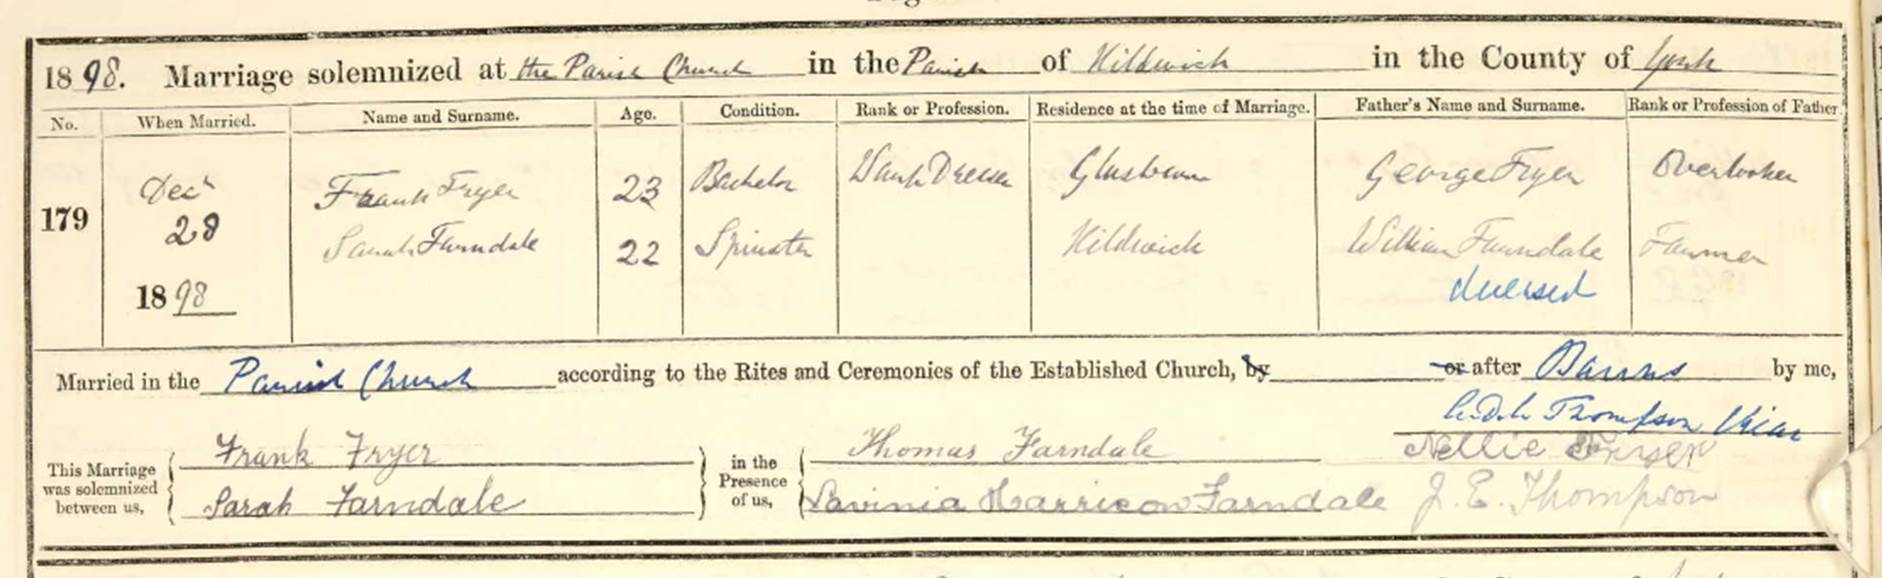 1898. Marriage solemnized at the Parish Church in the Parish of Kildwick in the County of York
No. When Married. Name and Surname. Age. Condition. Rank or Profession. Residence at the time of Marriage. Father's Name and Surname. Rank or Profession of Father.
179 Dec 28 1898
Frank Fryer 23 Bachelor Warp Dresser Glusburn George Fryer Overlooker
Sarah Farndale 22 Spinster Kildwick William Farndale Farmer
deceased
Married in the Parish Church according to the Rites and Ceremonies of the Established Church, by or after Banns by me,
Thompson Vicar
This Marriage was solemnized between us, Frank Fryer in the Presence of us, Thomas Farndale Nellie Fryer
Sarah Farndale Lavinia Harrison Farndale J. E. Thompson